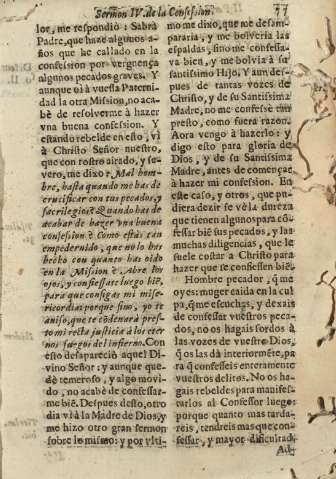 Sermon IV. de la Confession. 77
lor, me respondiò: Sabrà
Padre, que haze algunos a-
ños que he callado en la
confession por verguença
algunos pecados graves. Y
aunque oì à vuessa Paterni-
dad la otra Mission, no aca-
bè de resolverme à hazer
vna buena confession. Y
estando rebelde en esto, vì
à Christo Señor nuestro,
que con rostro airado, y se-
vero, me dixo: Mal hom-
bre, hasta quando me has de
crucificar con tus pecados, y
sacrilegios? Quando has de
acabar de hazer vna buena
confession? Como estàs tan
empedernido, que no lo has
hecho con quanto has oido
en la Mission? Abre los
ojos, y confiessate luego biē,
para que consigas mi mise-
ricordia: porque sino, yo te
aviso, que te condenarà pres-
to mi recta justicia à los eter-
nos fuegos del infierno. Con
esto desapareciò aquel Di-
vino Señor: y aunque que-
dè temeroso, y algo movi-
do, no acabè de confessar-
me biē. Despues desto, otro
dia vì à la Madre de Dios, y
me hizo otro gran sermon
sobre lo mismo: y por vlti-
mo me dixo, que me desam-
pararia, y me bolveria las
espaldas, sino me confessa-
va bien, y me bolvia à su
santissimo Hijo. Y aun des-
pues de tantas vozes de
Christo, y de su Santissima
Madre, no me confessè tan
presto, como fuera razon.
Aora vengo à hazerlo: y
digo esto para gloria de
Dios, y de su Santissima
Madre, antes de començar
à hazer mi confession. En
este caso, y otros, que pu-
diera dezir se vè la dureza
que tienen algunos para cō-
fessar biē sus pecados, y las
muchas diligencias, que le
suele costar à Christo para
hazer que se confiessen biē.
Hombre pecador, q̄ me
oyes: muger caida en la cul-
pa, q̄ me escuchas, y dexais
de confessar vuestros peca-
dos, no os hagais sordos à
las vozes de vuestro Dios,
q̄ os las dà interiormēte, pa
ra q̄ confesseis enteramente
vuestros delitos. No os ha-
gais rebeldes para manifes-
tarlos al Confessor luego:
porque quanto mas tarda-
reis, tendreis mas que con-
fessar, y mayor dificultad.